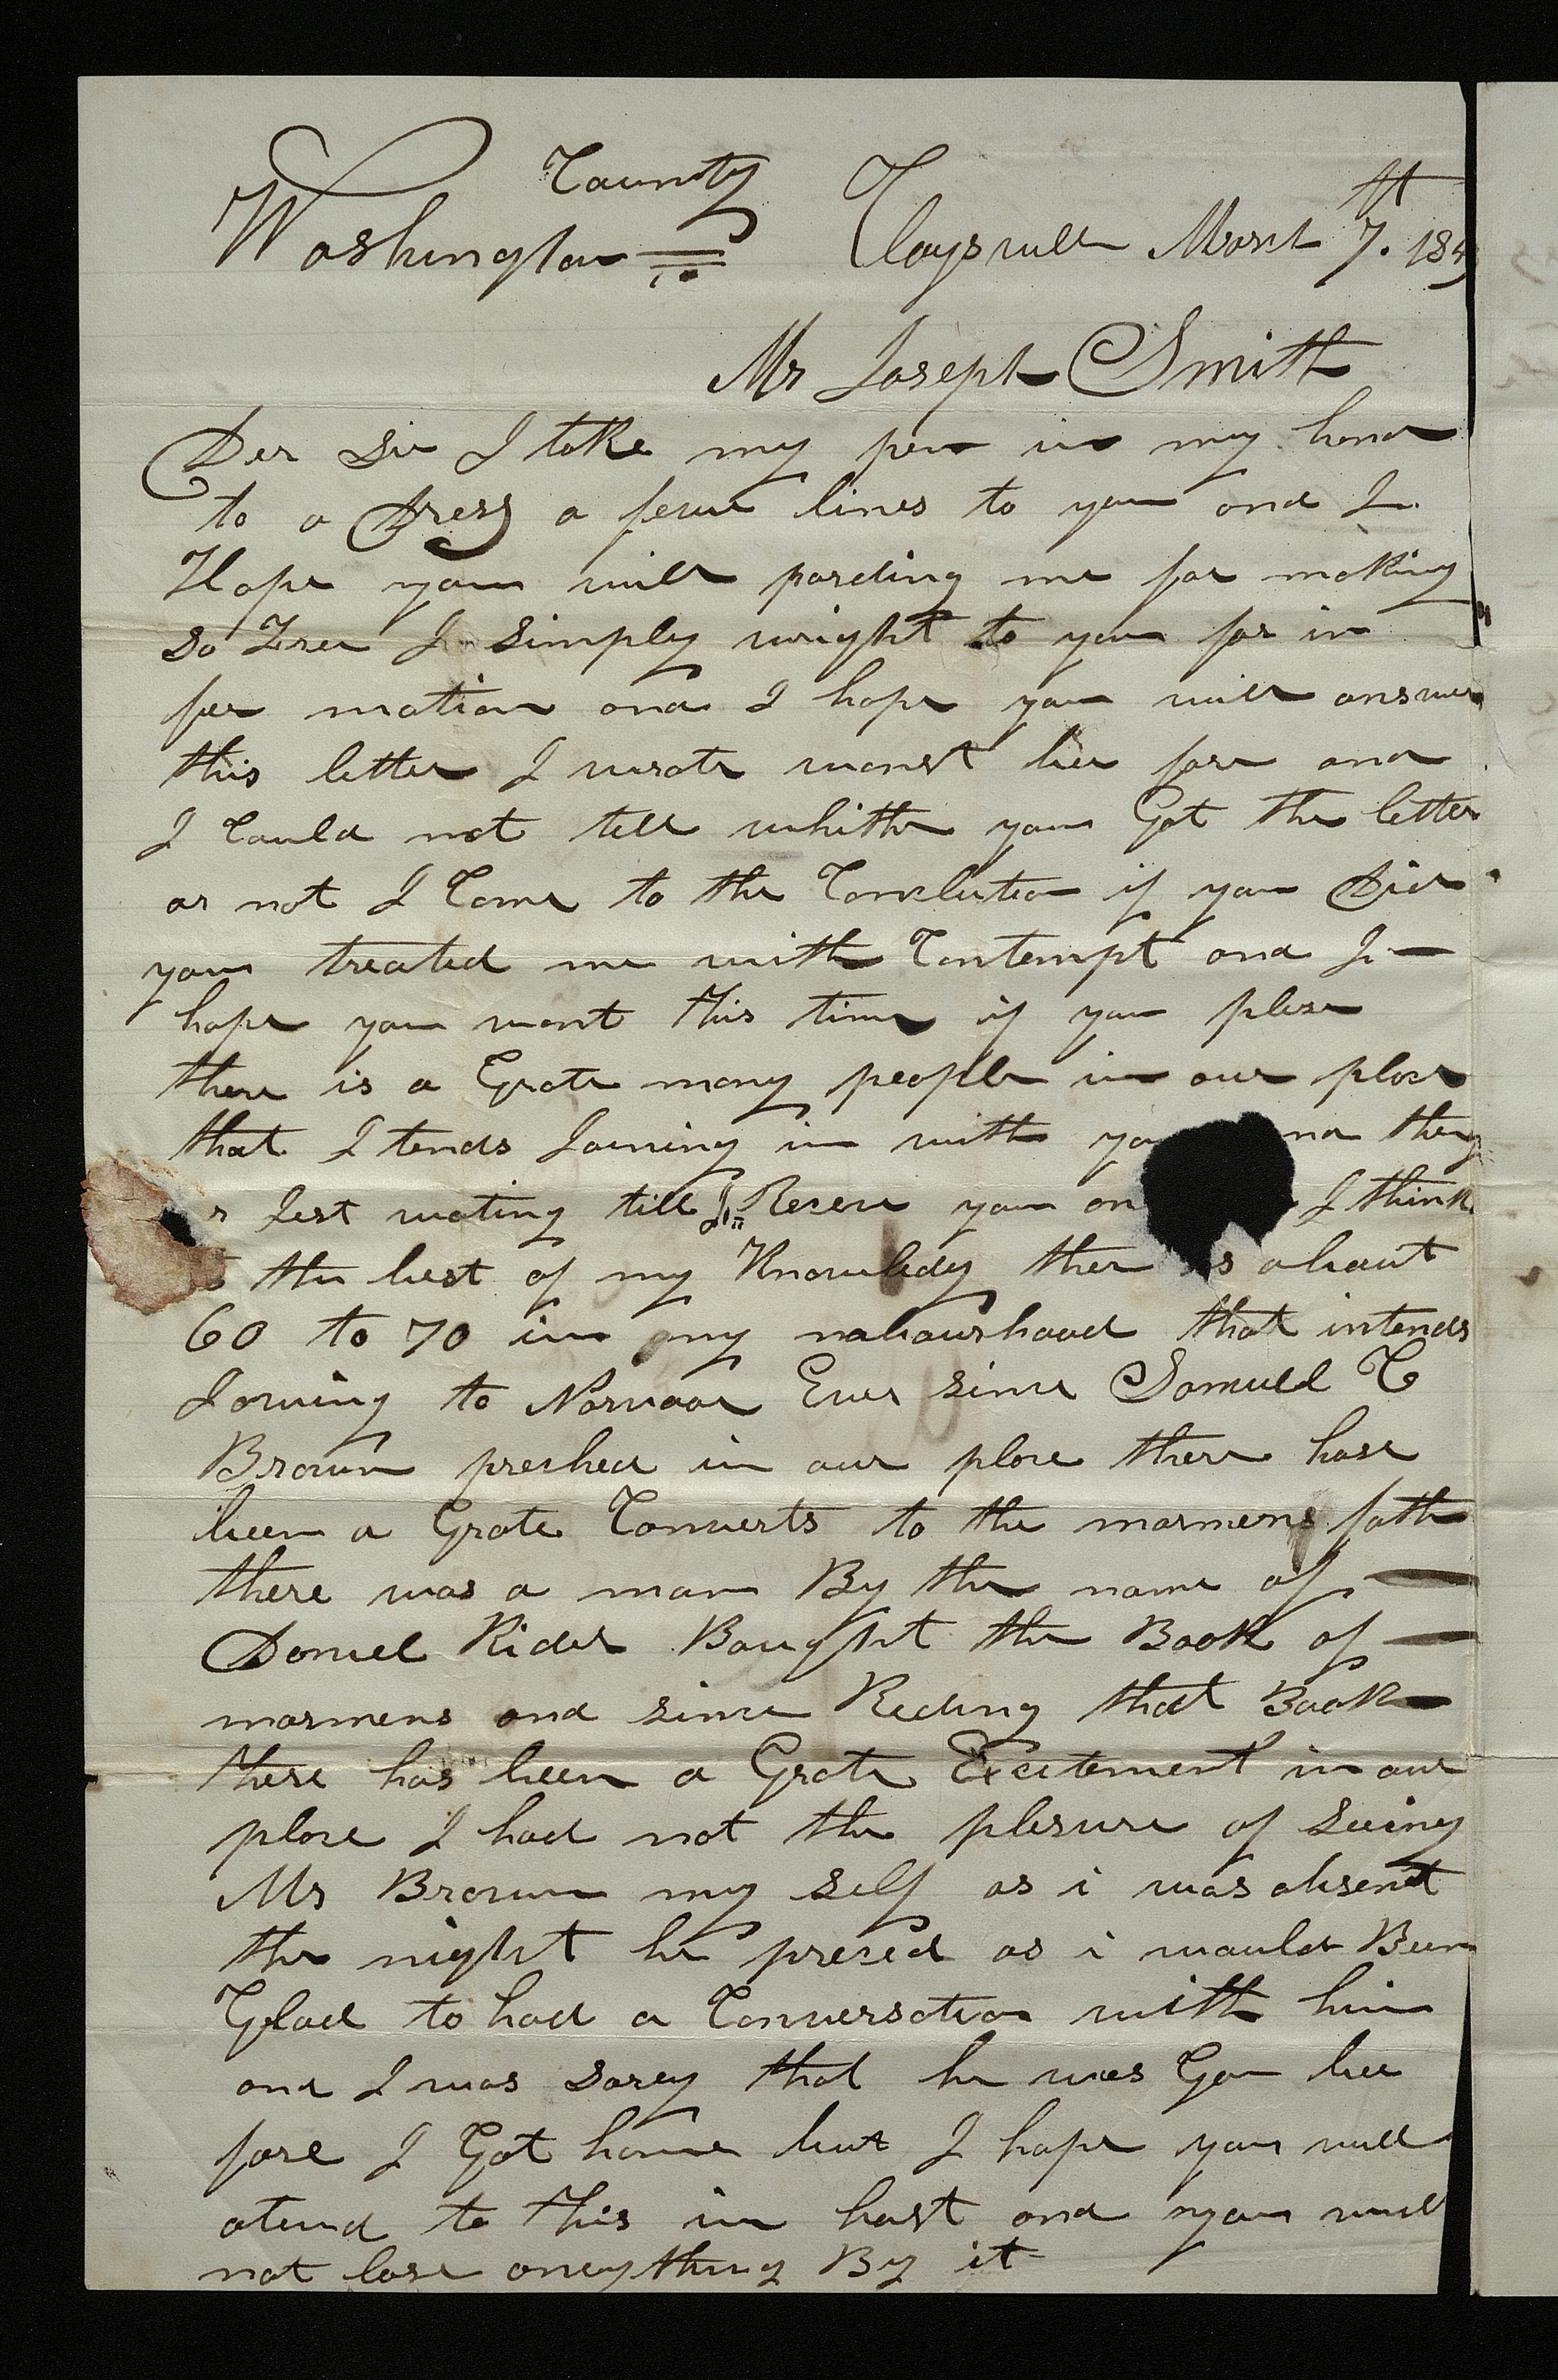 County
Washington Claysvill March 7th. 184
Mr Joseph Smith
Der Sir I take my pen in my hand
to a Dress a feur lines to you and I
Hope you will parding me for making
so Free I simply wright to you for in
fer mation and I hope you will answer
this letter I wrote wonst bee fore and
I Could not tell whither you Got the letter
or not I Come to the Conclution if you Did
you treated me with Contempt and I
hope you wont this time if you plese
there is a Grate many people in our place
that I tends Joining in with and they
Jest wating till I Reseve you I think
the best of my Knowledg ther is about
60 to 70 in my nabourhood that intends
Joining to Norvoo Ever since Samuel C
Brown preched in our place there hase
been a Grate Converts to the mormens fath
there was a man By the name of
Daniel Rider Baught the Book of
mormens and since Reding that Book
there has been a Grate Excitement in our
place I had not the plesure of seeing
Mr Brown my self as i was absent
the night he preced as i would Been
Glad to had a Conversation with him
and I was sorey that he was Gon bee
fore I Got home but I hope you will
atend to this in hast and you will
not lose aneything By it